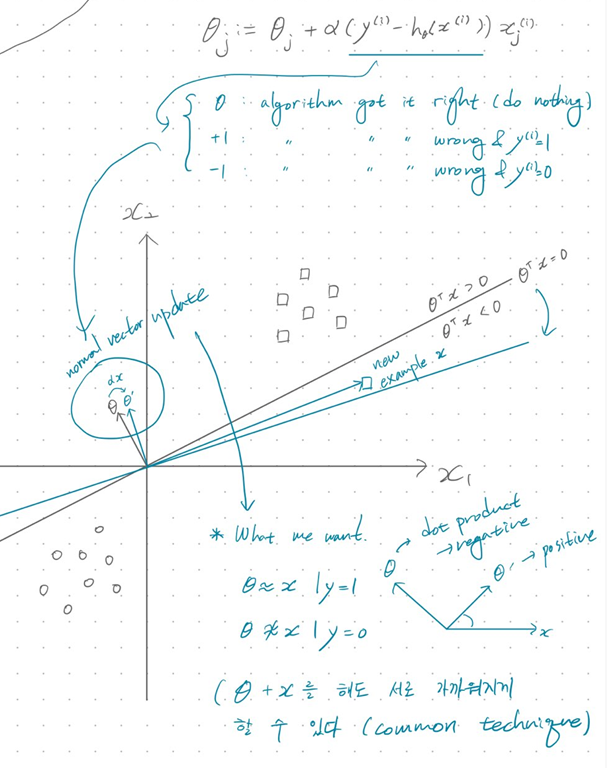 θj := θj + α (y⁽ⁱ⁾ − hθ(x⁽ⁱ⁾)) xj⁽ⁱ⁾
0 : algorithm got it right (do nothing)
+1 : " " " wrong & y⁽ⁱ⁾=1
−1 : " " " wrong & y⁽ⁱ⁾=0
x₂
θᵀx > 0
θᵀx = 0
θᵀx < 0
normal vector update
new
example x
αx
θ θ'
x₁
* What we want.
θ ≈ x | y=1
θ ≉ x | y=0
dot product
→ negative
θ
θ' → positive
x
( θ + x 를 해도 서로 가까워지게
할 수 있다 (common technique)